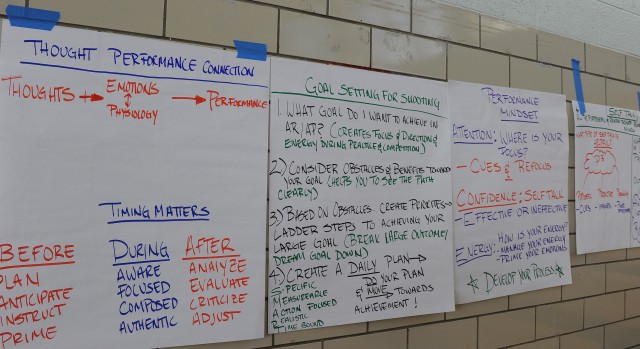 THOUGHT PERFORMANCE CONNECTION
THOUGHTS → EMOTIONS → PERFORMANCE
↕
PHYSIOLOGY
TIMING MATTERS
BEFORE
PLAN
ANTICIPATE
INSTRUCT
PRIME
DURING
AWARE
FOCUSED
COMPOSED
AUTHENTIC
AFTER
ANALYZE
EVALUATE
CRITICIZE
ADJUST
GOAL SETTING FOR SHOOTING
1. WHAT GOAL DO I WANT TO ACHIEVE IN
AR/AP? (CREATES FOCUS & DIRECTION &
ENERGY DURING PRACTICE & COMPETITION)
2) CONSIDER OBSTACLES & BENEFITS TOWARDS
YOUR GOAL (HELPS YOU TO SEE THE PATH
CLEARLY)
3) BASED ON OBSTACLES CREATE PRIORITIES →
LADDER STEPS TO ACHIEVING YOUR
LARGE GOAL (BREAK LARGE OUTCOME/
DREAM GOAL DOWN)
4) CREATE A DAILY PLAN →
DO YOUR PLAN
& MOVE → TOWARDS
ACHIEVEMENT!
SPECIFIC
MEASUREABLE
ACTION FOCUSED
REALISTIC
TIME BOUND
PERFORMANCE
MINDSET
ATTENTION: WHERE IS YOUR
FOCUS?
- CUES & REFOCUS
CONFIDENCE: SELF TALK
- EFFECTIVE OR INEFFECTIVE
ENERGY: HOW IS YOUR ENERGY?
- MANAGE YOUR ENERGY
- PRIME YOUR EMOTIONS
☆ DEVELOP YOUR PROCESS ☆
SELF TALK